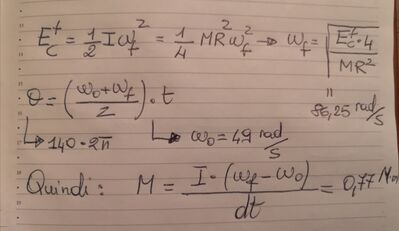 E_c^f = 1/2 I ω_f^2 = 1/4 MR^2 ω_f^2 → ω_f = √(E_c^f · 4 / MR^2)
θ = (ω_0 + ω_f / 2) · t
= 86,25 rad/s
↳ 140 · 2π ↳ ω_0 = 49 rad/s
Quindi : M = I · (ω_f − ω_0) / dt = 0,77